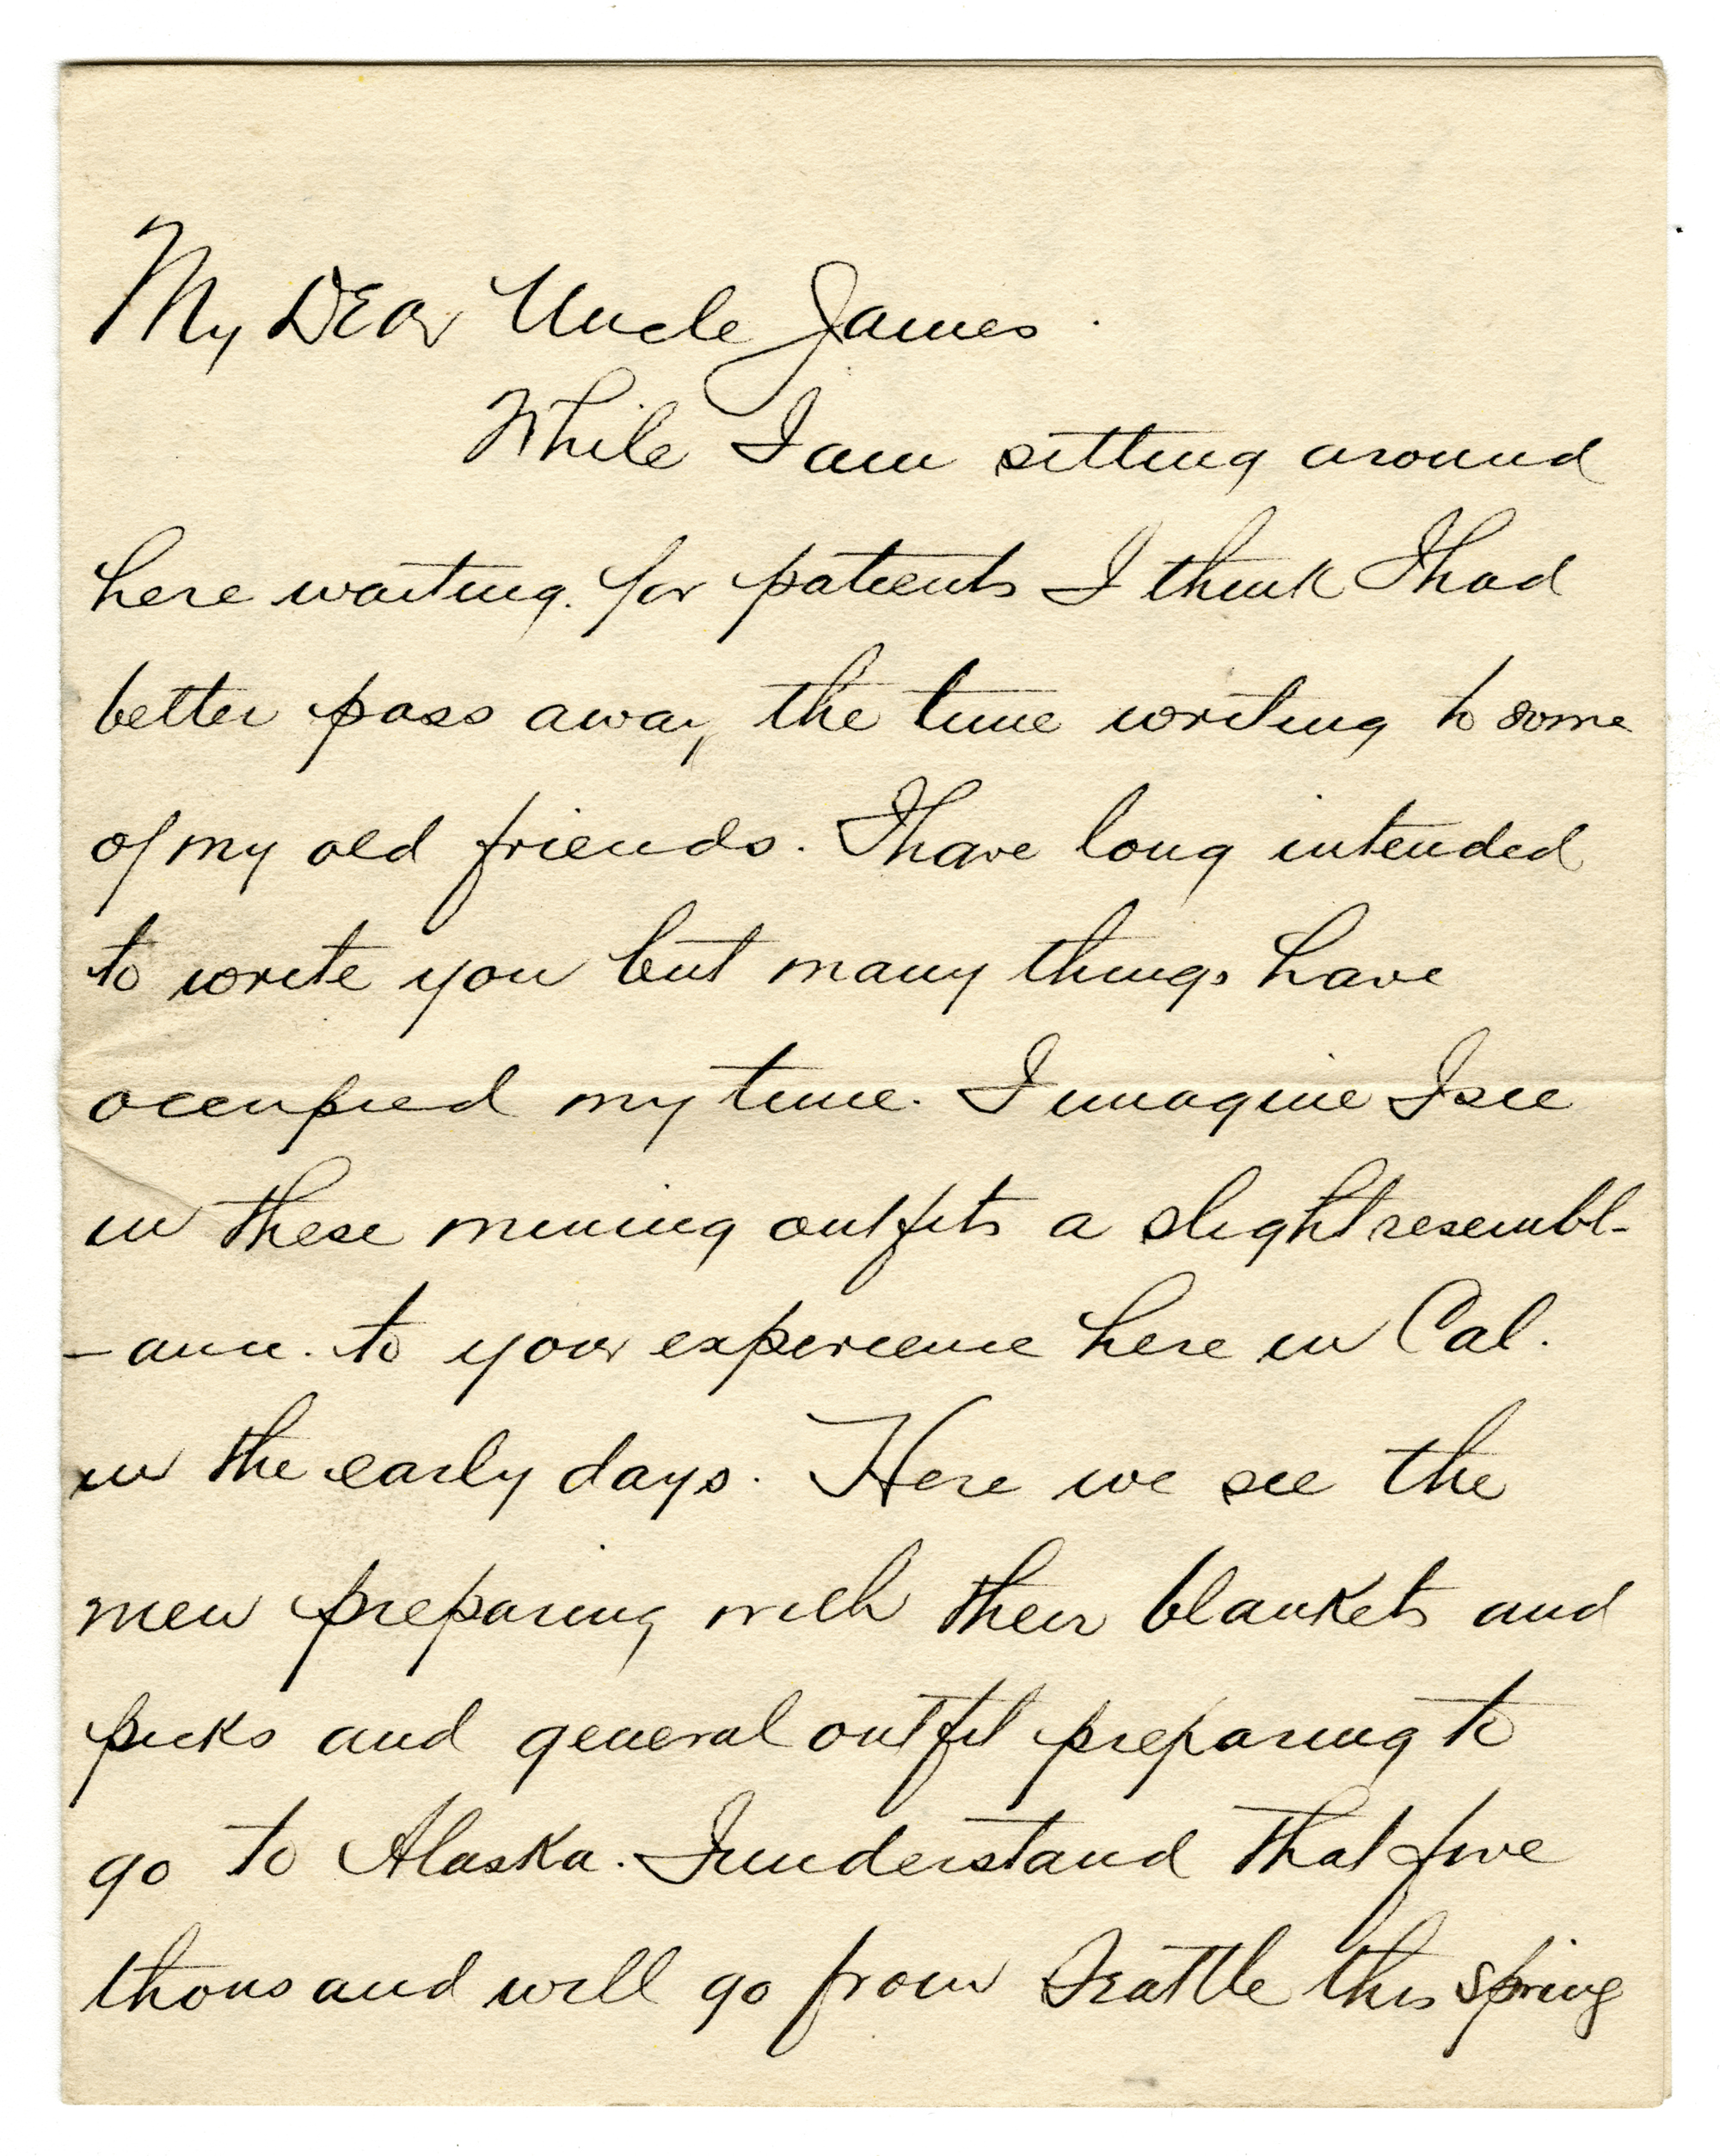 My Dear Uncle James.
While I am sitting around
here waiting for patients I think I had
better pass away the time writing to some
of my old friends. I have long intended
to write you but many things have
occupied my time. I imagine I see
in these mining outfits a slight resembl-
-ance to your experience here in Cal.
in the early days. Here we see the
men preparing with their blankets and
picks and general outfit preparing to
go to Alaska. I understand that five
thousand will go from Seattle this spring